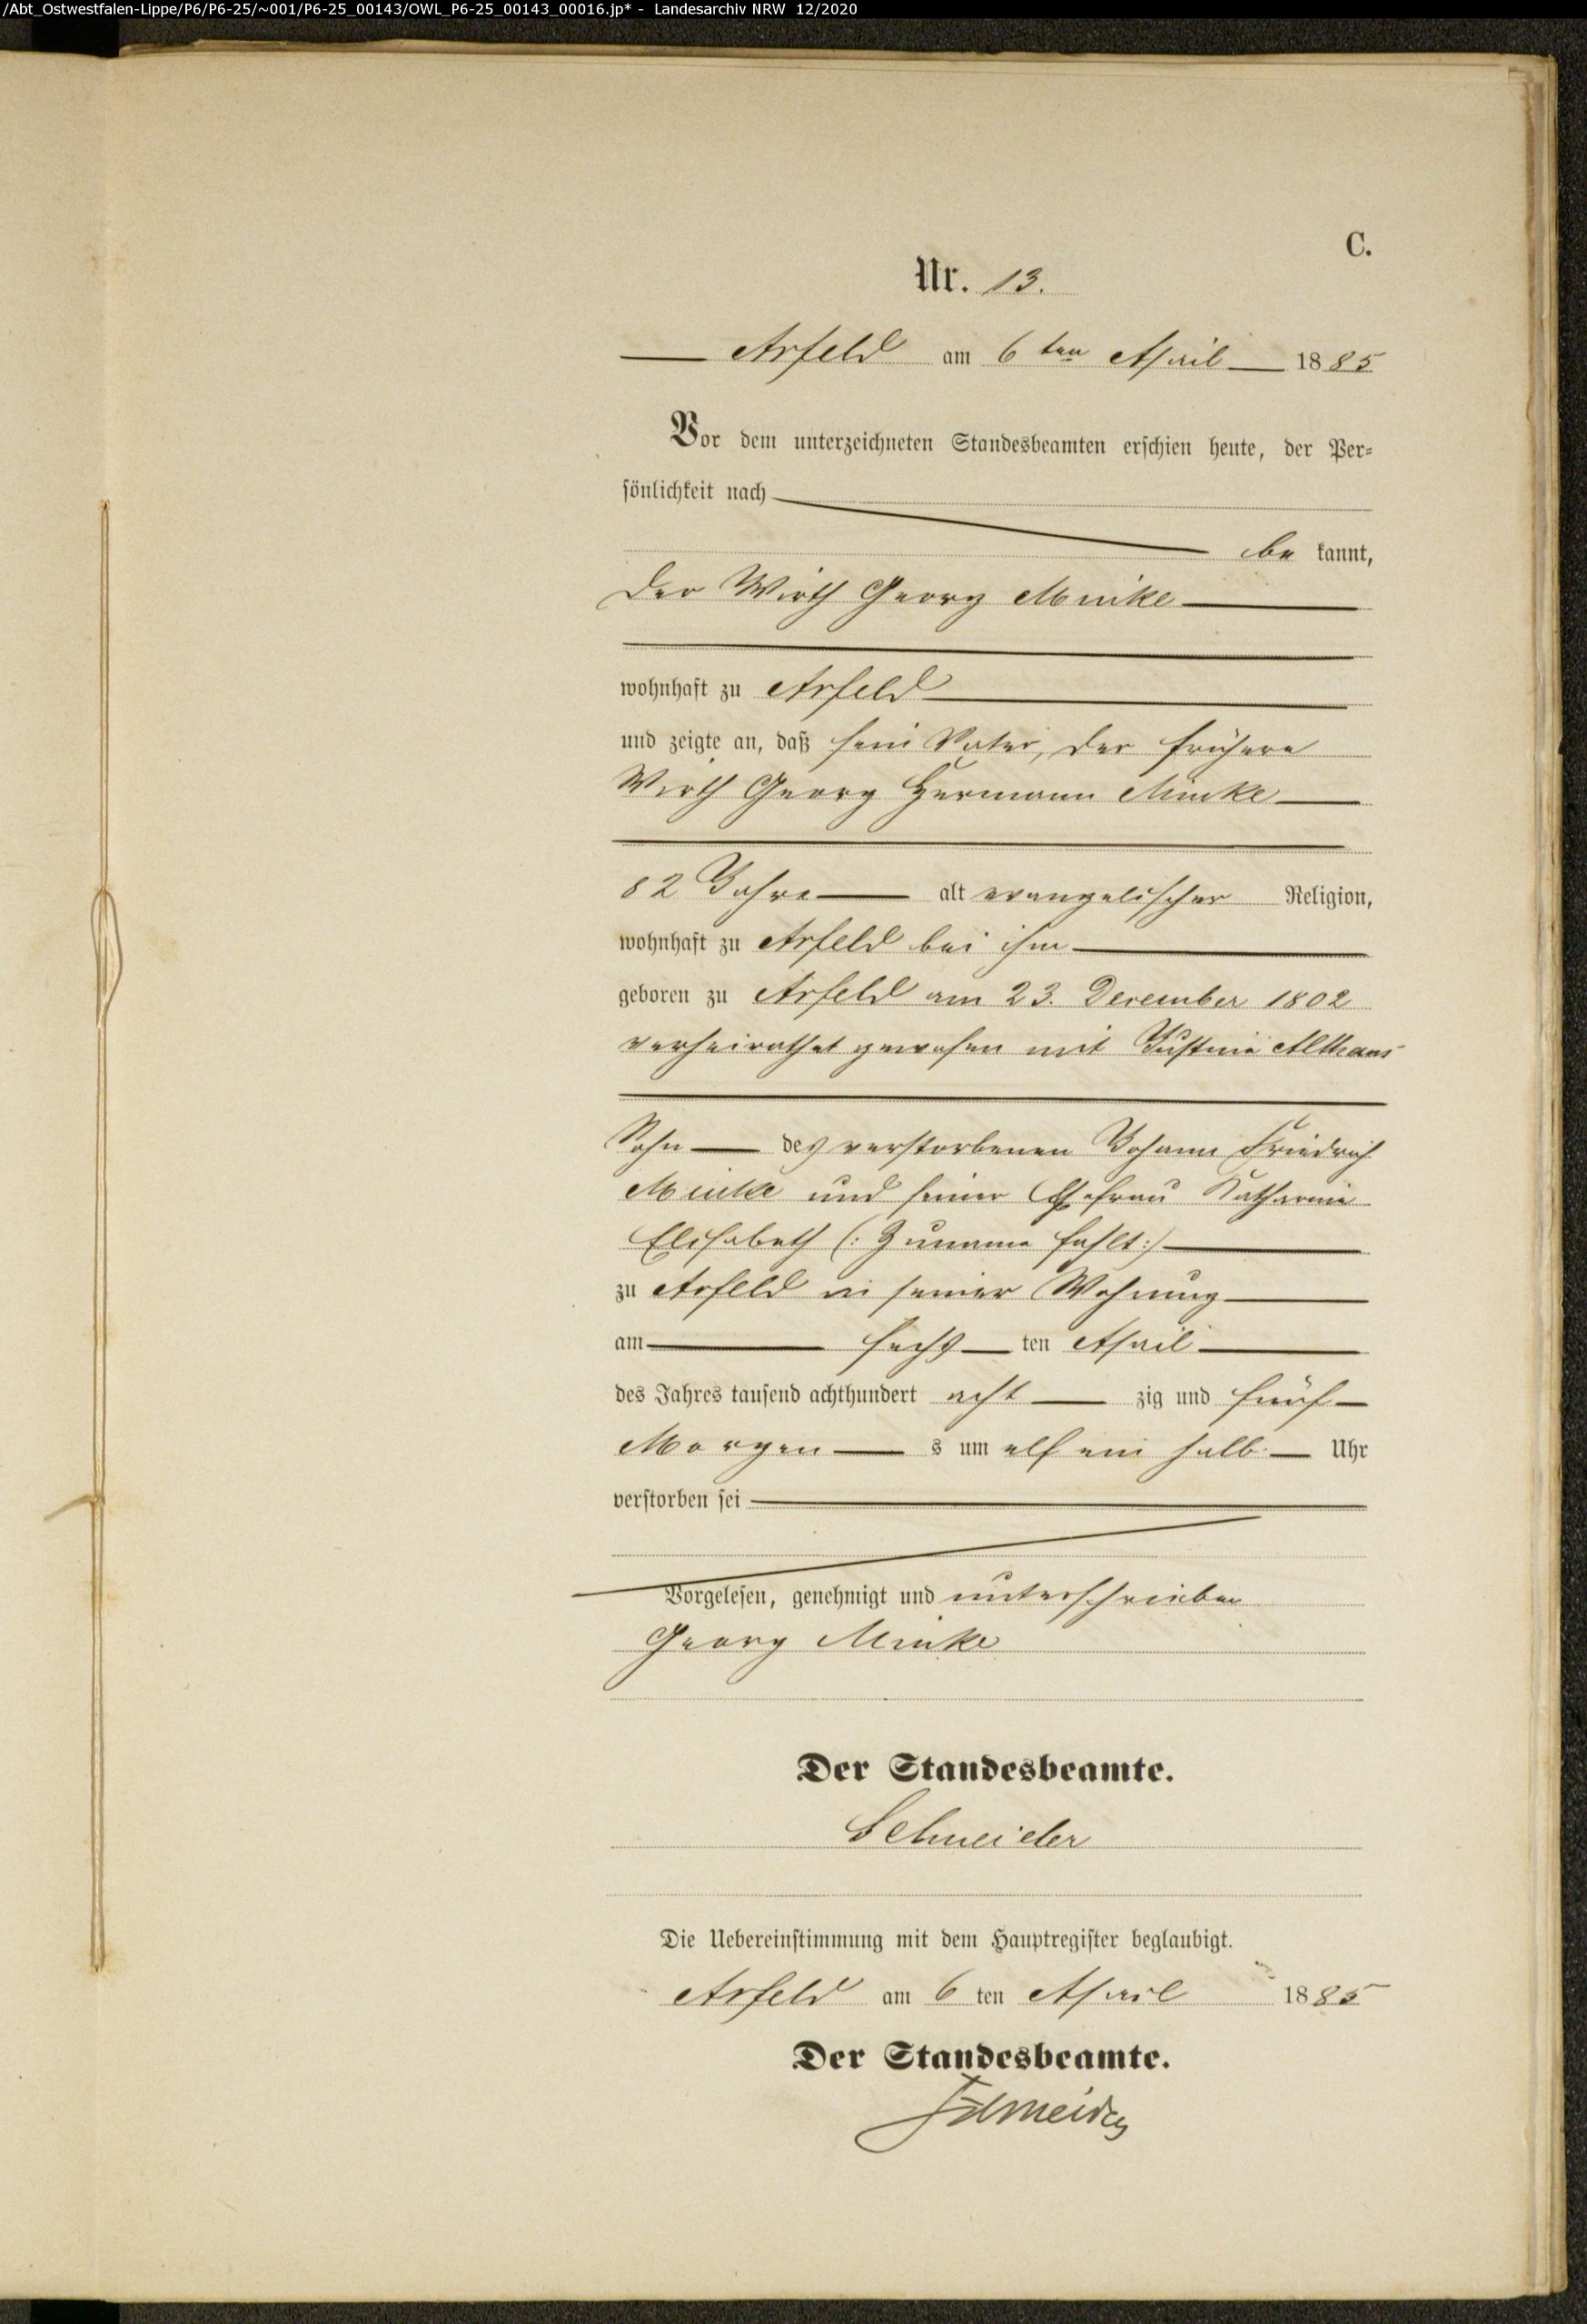 /Abt_Ostwestfalen-Lippe/P6/P6-25/~001/P6-25_00143/OWL_P6-25_00143_00016.jp* - Landesarchiv NRW 12/2020
C.
Nr. 13.
Arfeld am 6ten April 1885
Vor dem unterzeichneten Standesbeamten erschien heute, der Per-
sönlichkeit nach
be kannt,
der Wirth Georg Minke
wohnhaft zu Arfeld
und zeigte an, daß sein Vater, der frühere
Wirth Georg Hermann Minke
82 Jahre alt evangelischer Religion,
wohnhaft zu Arfeld bei ihm
geboren zu Arfeld am 23. December 1802
verheirathet gewesen mit Justine Althaus
Sohn des verstorbenen Johann Friedrich
Minke und seiner Ehefrau Katharine
Elisabeth (: Zuname fehlt :)
zu Arfeld in seiner Wohnung
am sechs ten April
des Jahres tausend achthundert acht zig und fünf
Morgen s um elf ein halb Uhr
verstorben sei
Vorgelesen, genehmigt und unterschrieben
Georg Minke
Der Standesbeamte.
Schneider
Die Uebereinstimmung mit dem Hauptregister beglaubigt.
Arfeld am 6 ten April 1885
Der Standesbeamte.
Schneider